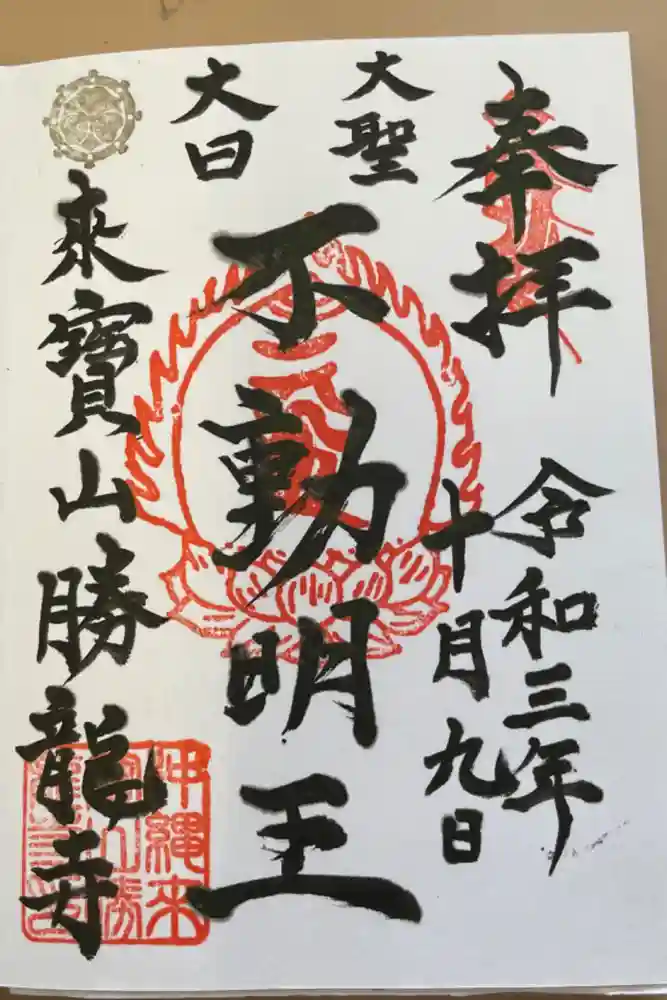 奉拝
令和三年
十月九日
大聖
大日
不動明王
來寶山勝龍寺
沖縄来